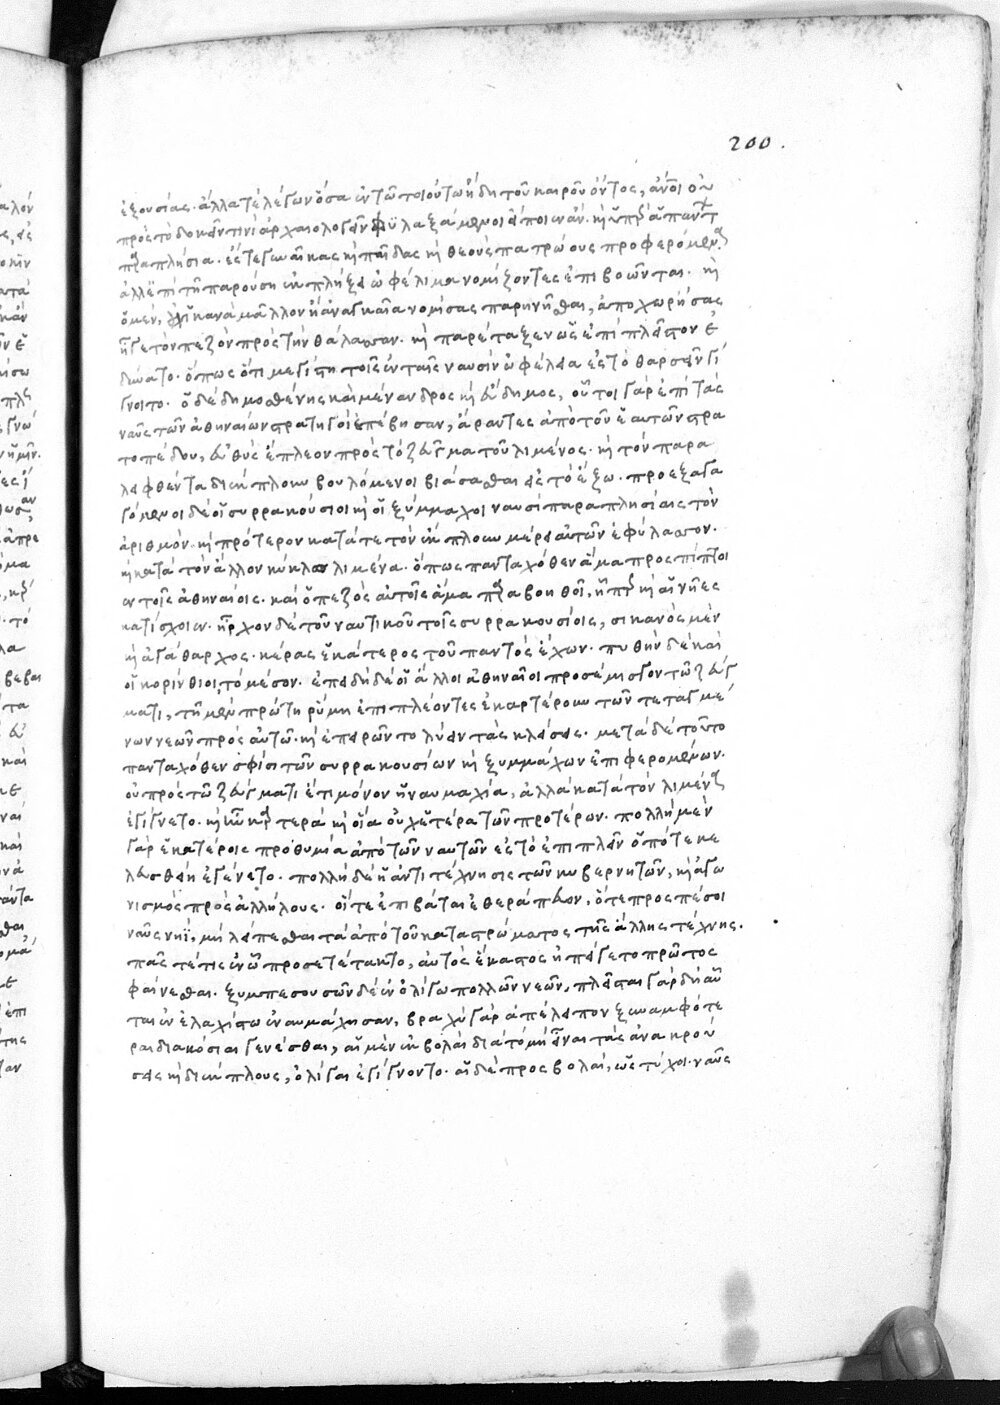 200.
ἐξουσίας. ἄλλα τε λέγων ὅσα ἐν τῶ τοιούτω ἤδη τοῦ καιροῦ ὄντος, ἄνοι οὐ
πρὸς τὸ δοκεῖν τινὶ ἀρχαιολογεῖν φϋλαξάμενοι εἴποιεν ἄν. κὴ ὑπὲρ ἁπάντ
παραπλήσια. ἔς τε γυναῖκας κὴ παῖδας κὴ θεοὺς πατρώους προφερόμεν
ἀλλ' ἐπὶ τῆ παρούση ἐκπλήξει ὠφέλιμα νομίζοντες ἐπιβοῶνται. κὴ
ὁ μὲν, οὐχ ἱκανὰ μᾶλλον ἢ ἀναγκαῖα νομίσας παρηνῆσθαι, ἀποχωρήσας
ἦγε τὸν πεζὸν πρὸς τὴν θάλασσαν. κὴ παρέταξεν ὡς ἐπὶ πλεῖστον ἐ
δύνατο. ὅπως ὅτι μεγίστη τοῖς ἐν ταῖς ναυσὶν ὠφέλεια ἐς τὸ θαρσεῖν γί
γνοιτο. ὁ δὲ δημοσθένης καὶ μένανδρος κὴ εὐδημος, οὗτοι γὰρ ἐπὶ τὰς
ναῦς τῶν ἀθηναίων στρατηγοὶ ἐπέβησαν, ἄραντες ἀπὸ τοῦ ἑαυτῶν στρα
τοπέδου, εὐθὺς ἔπλεον πρὸς τὸ ζεῦγμα τοῦ λιμένος. κὴ τὸν παρα
λειφθέντα διέκπλουν βουλόμενοι βιάσασθαι ἐς τὸ ἔξω. προεξαγα
γόμενοι δὲ οἱ συρρακούσιοι κὴ οἱ ξύμμαχοι ναυσὶ παραπλησίαις τὸν
ἀριθμὸν κὴ πρότερον κατά τε τὸν ἔκπλουν μέρει αὐτῶν ἐφύλασσον.
κὴ κατὰ τὸν ἄλλον κύκλω λιμένα. ὅπως πανταχόθεν ἅμα προσπίπτοι
εν τοῖς ἀθηναίοις. καὶ ὁ πεζὸς αὐτοῖς ἅμα παραβοηθοῖ, ἧπερ κὴ αἱ νῆες
κατίσχοιεν. ἦρχον δὲ τοῦ ναυτικοῦ τοῖς συρρακουσίοις, σικανὸς μὲν
κὴ ἀγάθαρχος. κέρας ἑκάτερος τοῦ παντὸς ἔχων. πυθὴν δὲ καὶ
οἱ κορίνθιοι, τὸ μέσον. ἐπειδὴ δὲ οἱ ἄλλοι ἀθηναῖοι προσέμισγον τῶ ζεύγ
ματι, τῆ μὲν πρώτη ῥύμη ἐπιπλέοντες ἐκαρτέρουν τῶν τεταγμέ
νων νεῶν πρὸς αὐτῶ. κὴ ἐπειρῶντο λύειν τὰς κλείσεις. μετὰ δὲ τοῦτο
πανταχόθεν σφίσι τῶν συρρακουσίων κὴ ξυμμάχων ἐπιφερομένων.
οὐ πρὸς τῶ ζεύγματι ἔτι μόνον ἡ ναυμαχία, ἀλλὰ κατὰ τὸν λιμένα
ἐγίγνετο. κὴ ἦν καρτερὰ κὴ οἵα οὐχ ἑτέρα τῶν προτέρων. πολλὴ μὲν
γὰρ ἑκατέροις προθυμία ἀπὸ τῶν ναυτῶν ἐς τὸ ἐπιπλεῖν ὁπότε κε
λευσθείη ἐγένετο. πολλὴ δὲ ἡ ἀντιτέχνησις τῶν κυβερνητῶν, κὴ ἀγω
νισμὸς πρὸς ἀλλήλους. οἵ τε ἐπιβάται ἐθεράπευον, ὅτε προσπέσοι
ναῦς νηΐ, μὴ λείπεσθαι τὰ ἀπὸ τοῦ καταστρώματος τῆς ἄλλης τέχνης.
πᾶς τέ τις ἐν ὧ προσετέτακτο, αὐτὸς ἕκαστος ἠπείγετο πρῶτος
φαίνεσθαι. ξυμπεσουσῶν δὲ ἐν ὀλίγω πολλῶν νεῶν, πλεῖσται γὰρ δὴ αὗ
ται ἐν ἐλαχίστω ἐναυμάχησαν, βραχὺ γὰρ ἀπέλειπον ξυναμφότε
ραι διακόσιαι γενέσθαι, αἱ μὲν ἐμβολαὶ διὰ τὸ μὴ εἶναι τὰς ἀνακρού
σεις κὴ διέκπλους, ὀλίγαι ἐγίγνοντο. αἱ δὲ προσβολαὶ, ὡς τύχοι ναῦς